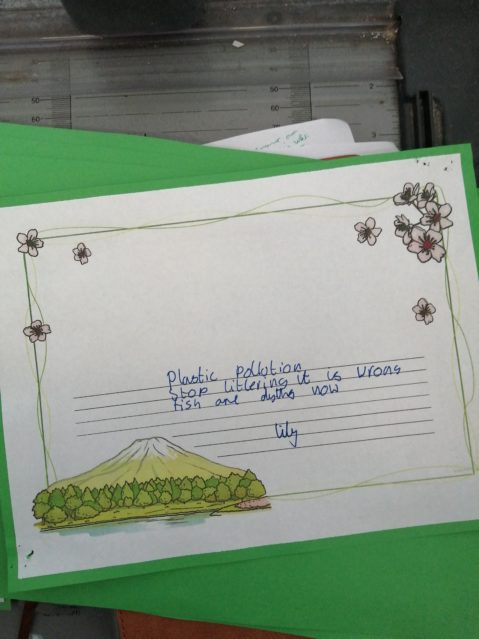 Plastic Pollution
Stop littering it is wrong
fish are dying now
lily
50
50
3
2